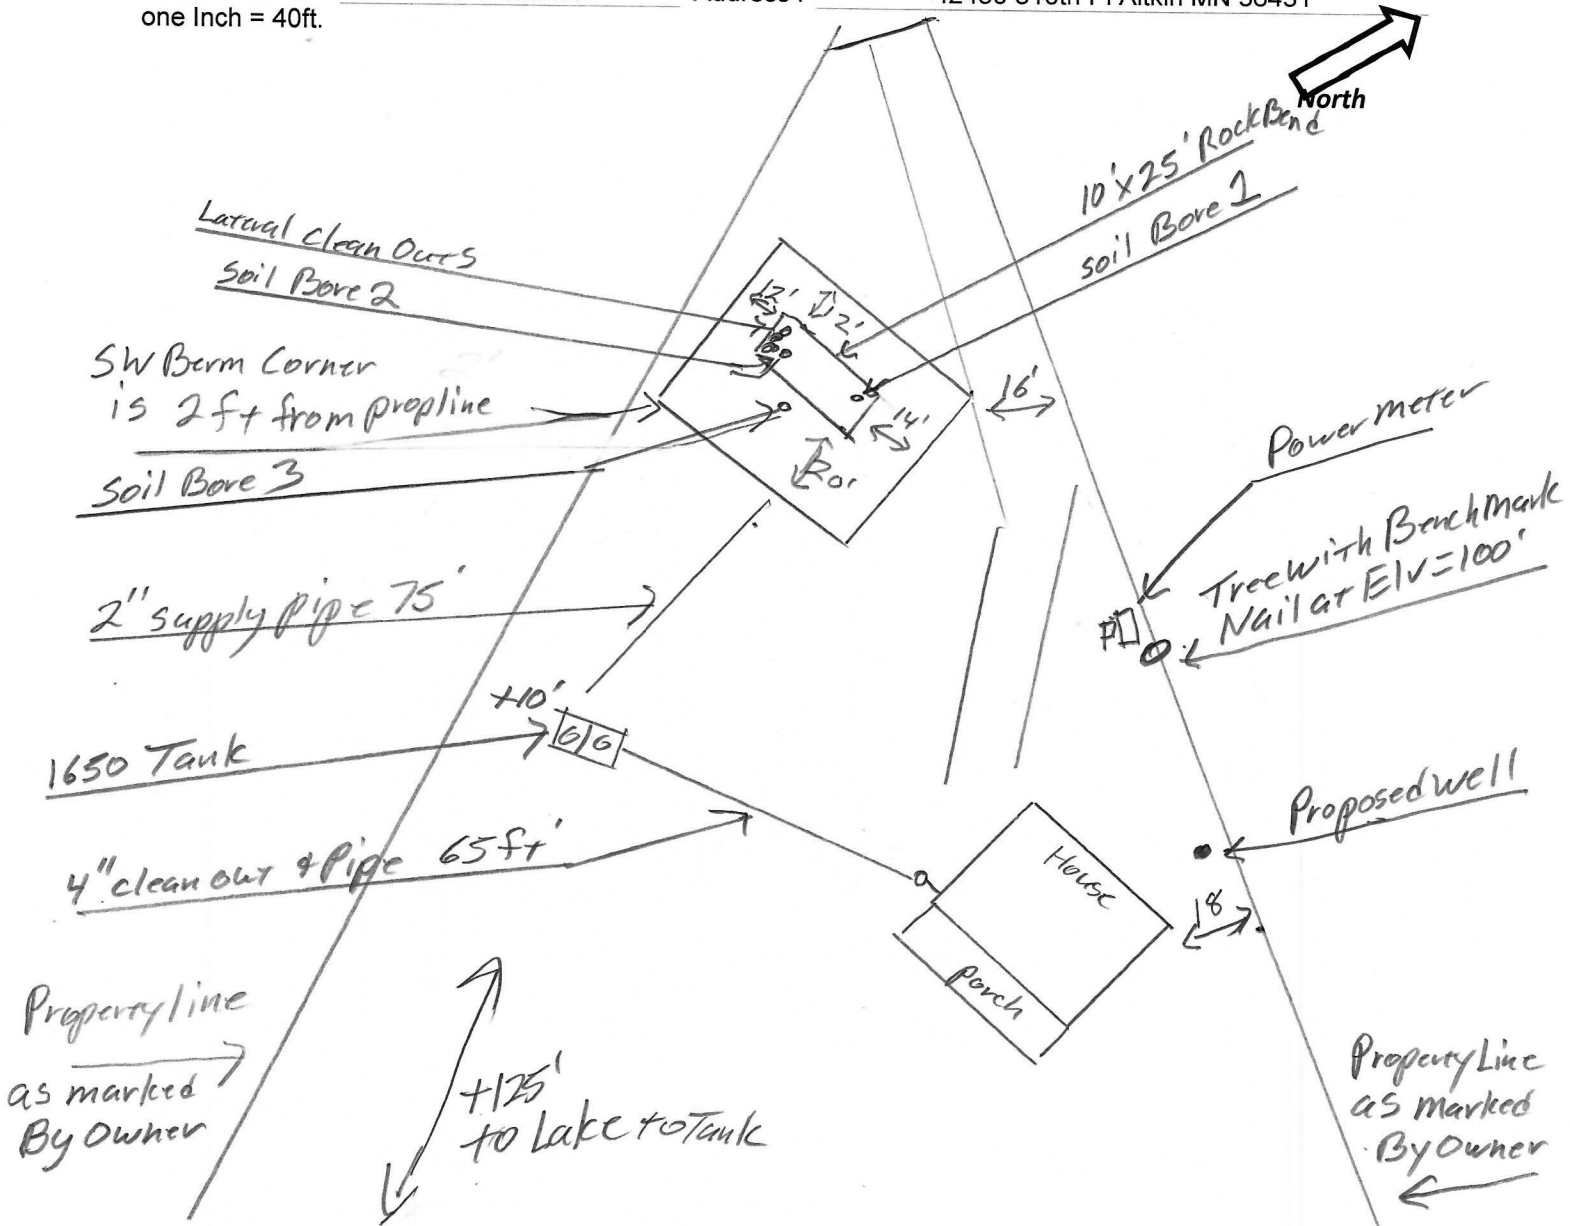 one Inch = 40ft.
North
10'x25' RockBend
soil Bore 1
Lateral Clean Outs
Soil Bore 2
12'
12'
SW Berm Corner
is 2ft from propline
16'
14'
Power meter
Soil Bore 3
20'
Tree with BenchMark
Nail at Elv=100'
2" supply pipe 75'
P
+10'
1650 Tank
Proposed well
4" clean out & Pipe 65ft'
House
18
Porch
Property line
as marked
By Owner
+125'
to Lake to Tank
Property Line
as marked
By Owner